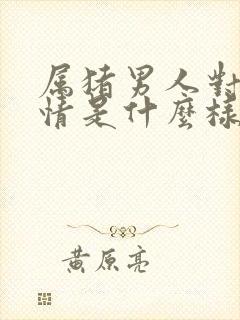 属猪男人對
情是什麼樣
黄原亮